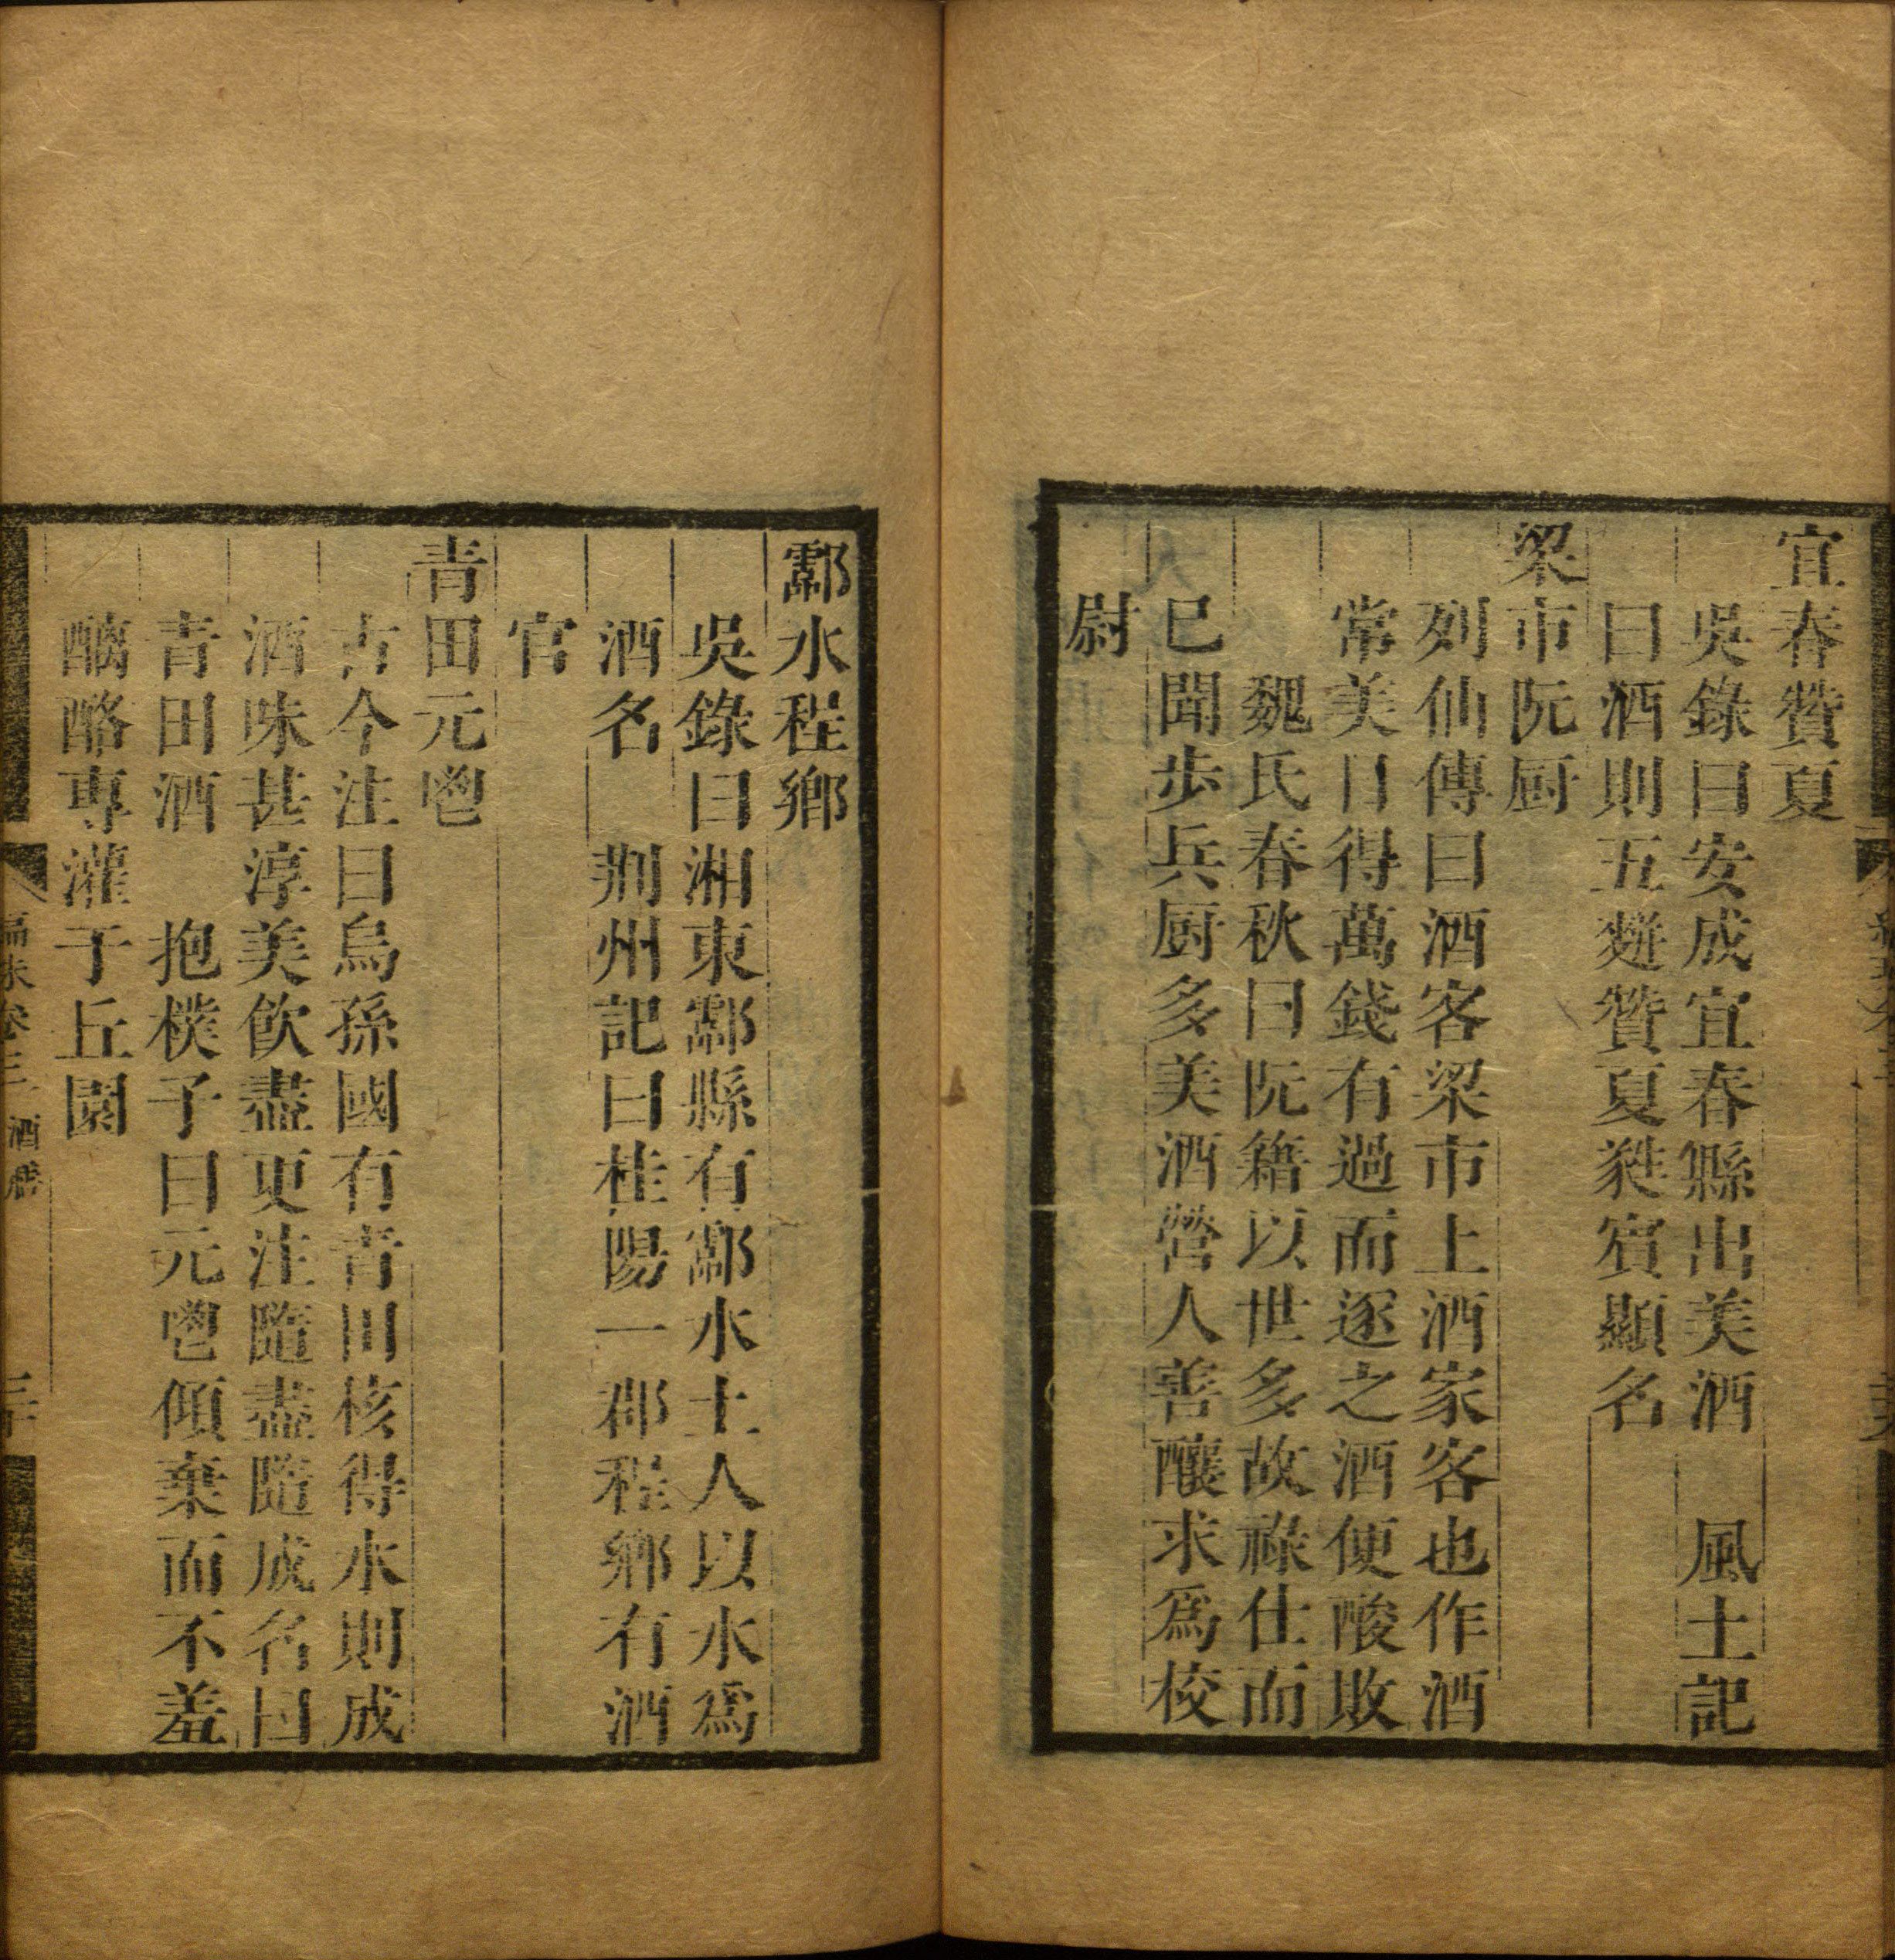 宜春贊夏
吳錄曰安成宜春縣出美酒　風土記
曰酒則五𪍿贊夏蕤賓顯名
梁市阮厨
列仙傳曰酒客梁市上酒家客也作酒
常美日得萬錢有過而逐之酒便酸敗
魏氏春秋曰阮籍以世多故祿仕而
巳聞步兵厨多美酒營人善釀求爲校
尉
酃水程鄉
吳錄曰湘東酃縣有酃水土人以水爲
酒名　荆州記曰桂陽一郡程鄉有酒
官
青田元鬯
古今注曰烏孫國有青田核得水則成
酒味甚淳美飲盡更注隨盡隨成名曰
青田酒　抱樸子曰元鬯傾棄而不羞
醨酪專灌于丘園
卷三　酒
三十